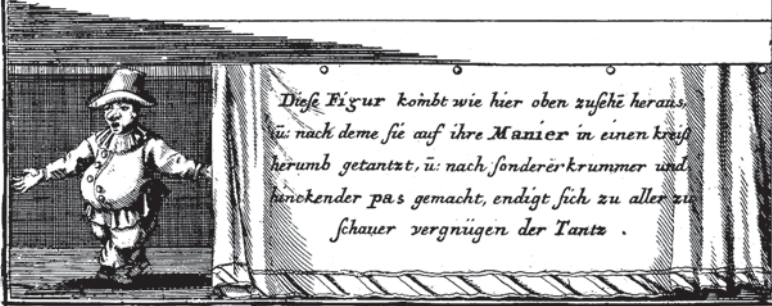 Dieſe Figur kom̄bt wie hier oben zuſehē heraus,
ū: nach deme ſie auf ihre Manier in einen kreiſſ
herumb getantzt, ū: nach ſonderer krummer und
hinckender pas gemacht, endigt ſich zu aller zu
ſchauer vergnügen der Tantz .